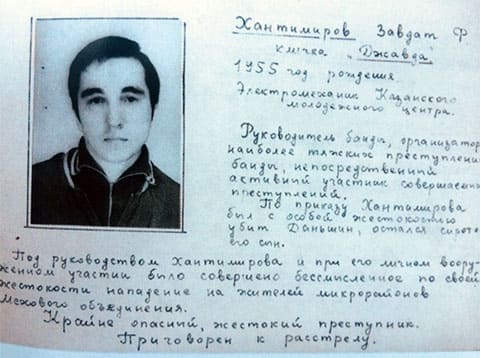 Хантимиров Завдат Ф
кличка „Джавда"
1955 год рождения
Электромеханик Казанского
молодежного центра.
Руководитель банды, организатор
наиболее тяжких преступлени
банды, непосредственный
активный участник совершаемы
преступлений.
По приказу Хантимирова
был с особой жестокостью
убит Даньшин, остался сирото
его сын.
Под руководством Хантимирова и при его личном воору-
женном участии было совершено бессмысленное по своей
жестокости нападение на жителей микрорайонов
Мехового объединения.
Крайне опасный, жестокий преступник.
Приговорен к расстрелу.